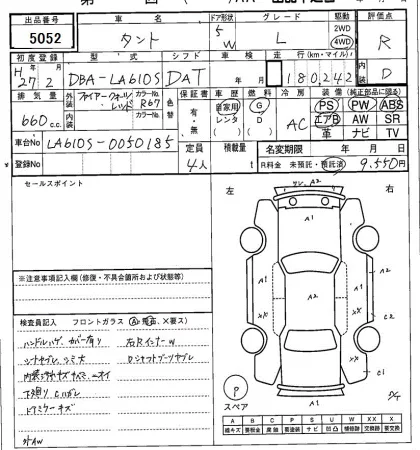 出品番号 車名 ドア形状 グレード 駆動 評価点
5052 タント 5 W L 2WD 4WD R
初度登録 型式 シフト 車検 走行(km・マイル) 内装
H27年 2月 DBA-LA610S DAT 年 月 180,242 D
排気量 外装 ファイアークォーツレッド カラーNo. R67 色替 保証書 車歴 燃料 冷房 装備(純正部品に限る)
660c.c. 内装 カラーNo. 有・無 自家用 レンタ G D AC PS PW ABS
エアB AW SR
革 ナビ TV
車台No LA610S-0050185 定員 積載量 名変期限 年 月 日
登録No 4人 t R料金 未預託・預託済 9,550円
セールスポイント 左 右
A2
A1
A1 A2 A2
XX XX C2
C1
A1
※注意事項記入欄(修復・不具合箇所および状態等)
検査員記入 フロントガラス (A・飛石、X要ス)
ハンドルハゲ カバー有り 右Rインナー W
シートヤブレ シミ大 Dシャフトブーツヤブレ
下廻りサビ
ドアミラーキズ
外AW
P
スペア
A B C P S U W X XX
線キズ 要板金 腐蝕 要塗装 サビ 凹凸 補修跡 要交換 交換跡